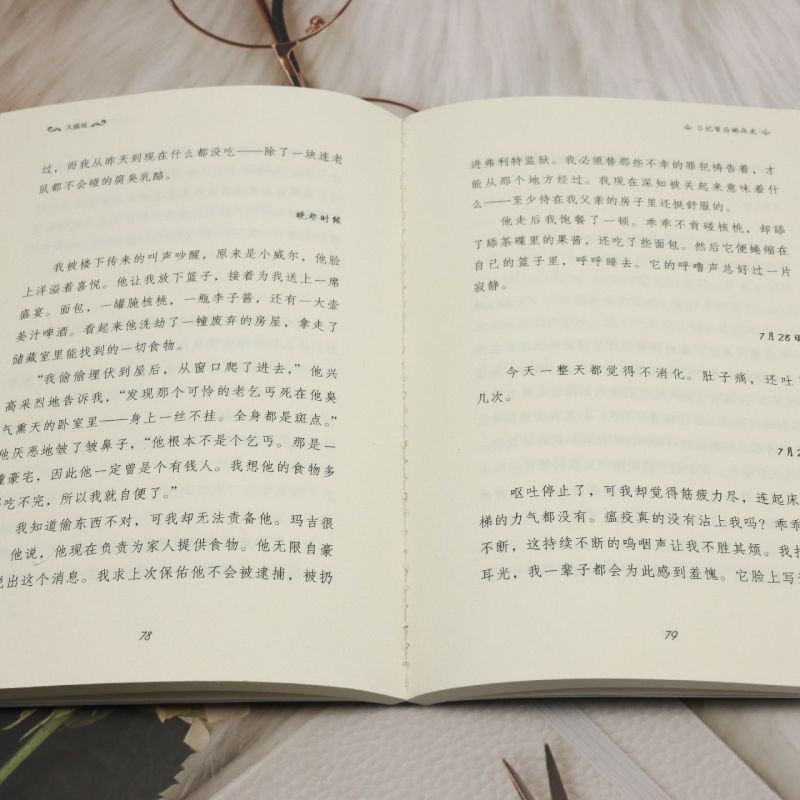 大瘟疫
过，而我从昨天到现在什么都没吃——除了一块连老
鼠都不会碰的腐臭乳酪。
晚些时候
我被楼下传来的叫声吵醒，原来是小威尔，他脸
上洋溢着喜悦。他让我放下篮子，接着为我送上一席
盛宴。面包，一罐腌核桃，一瓶李子酱，还有一大壶
姜汁啤酒。看起来他洗劫了一幢废弃的房屋，拿走了
储藏室里能找到的一切食物。
“我偷偷埋伏到屋后，从窗口爬了进去，”他兴
高采烈地告诉我，“发现那个可怜的老乞丐死在他臭
气熏天的卧室里——身上一丝不挂。全身都是斑点。”
他厌恶地皱了皱鼻子，“他根本不是个乞丐。那是一
幢豪宅，因此他一定曾是个有钱人。我想他的食物多
吃不完，所以我就自便了。”
我知道偷东西不对，可我却无法责备他。玛吉很
他说，他现在负责为家人提供食物。他无限自豪
说出这个消息。我求上次保佑他不会被逮捕，被扔
78
日记背后的历史
进弗利特监狱。我必须替那些不幸的罪犯祷告着，才
能从那个地方经过。我现在深知被关起来意味着什
么——至少待在我父亲的房子里还挺舒服的。
他走后我饱餐了一顿。乖乖不肯碰核桃，却舔
了舔茶碟里的果酱，还吃了些面包。然后它便蜷缩在
自己的篮子里，呼呼睡去。它的呼噜声总好过一片
寂静。
7月28
今天一整天都觉得不消化。肚子痛，还吐
几次。
7月2
呕吐停止了，可我却觉得筋疲力尽，连起床
梯的力气都没有。瘟疫真的没有沾上我吗？乖乖
不断，这持续不断的呜咽声让我不胜其烦。我
耳光，我一辈子都会为此感到羞愧。它脸上写
79